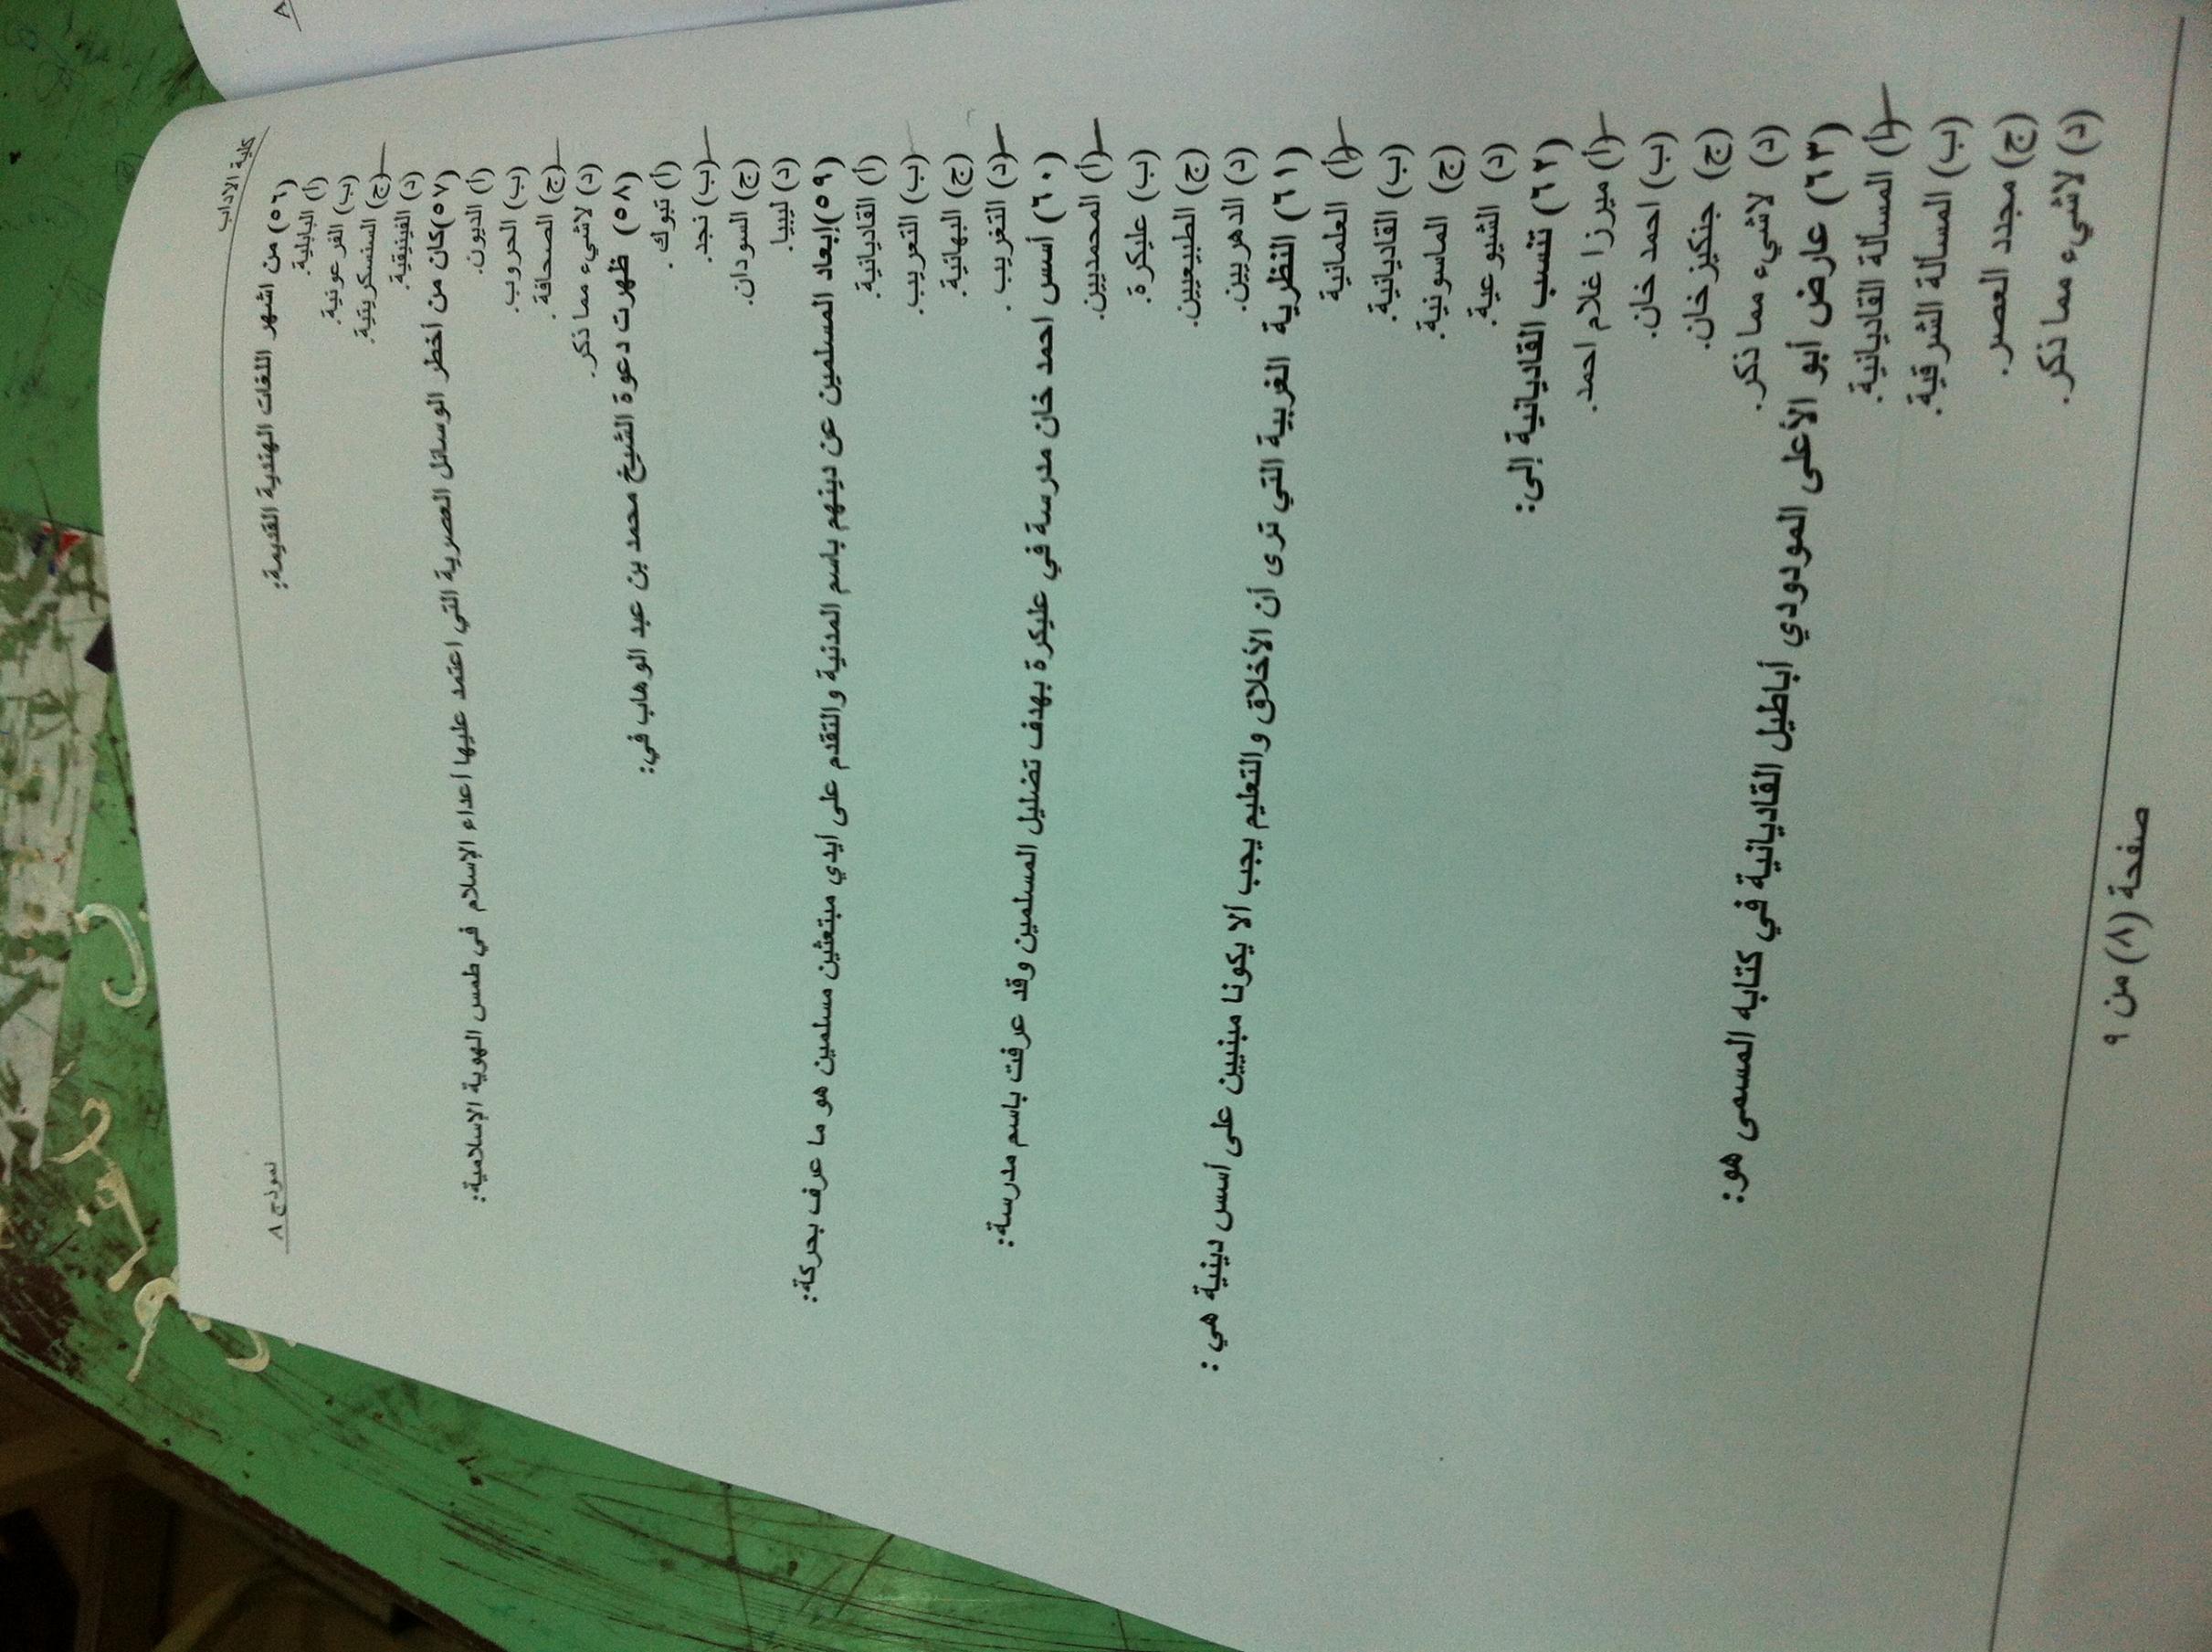 ٨
كلية الاداب
نموذج ٨
(٥٦) من اشهر اللغات الهندية القديمة:
(أ) البابلية.
(ب) الفرعونية.
(ج) السنسكريتية.
(د) الفينيقية.
(٥٧)كان من أخطر الوسائل العصرية التي اعتمد عليها أعداء الإسلام في طمس الهوية الإسلامية:
(أ) الديون.
(ب) الحروب.
(ج) الصحافة.
(د) لاشيء مما ذكر.
(٥٨) ظهرت دعوة الشيخ محمد بن عبد الوهاب في:
(أ) تبوك.
(ب) نجد.
(ج) السودان.
(د) ليبيا.
(٥٩)إبعاد المسلمين عن دينهم باسم المدنية والتقدم على أيدي مبتعثين مسلمين هو ما عرف بحركة:
(أ) القاديانية.
(ب) التعريب.
(ج) البهائية.
(د) التغريب .
(٦٠) أسس احمد خان مدرسة في عليكرة بهدف تضليل المسلمين وقد عرفت باسم مدرسة:
(أ) المحمديين.
(ب) عليكرة.
(ج) الطبيعيين.
(د) الدهريين.
(٦١) النظرية الغربية التي ترى أن الأخلاق والتعليم يجب ألا يكونا مبنيين على أسس دينية هي :
(أ) العلمانية
(ب) القاديانية.
(ج) الماسونية.
(د) الشيوعية.
(٦٢) تنسب القاديانية إلى:
(أ) ميرزا غلام احمد.
(ب) احمد خان.
(ج) جنكيز خان.
(د) لاشيء مما ذكر.
(٦٣) عارض أبو الأعلى المودودي أباطيل القاديانية في كتابه المسمى هو:
(أ) المسألة القاديانية.
(ب) المسألة الشرقية.
(ج) مجدد العصر.
(د) لاشيء مما ذكر.
صفحة (٨) من ٩